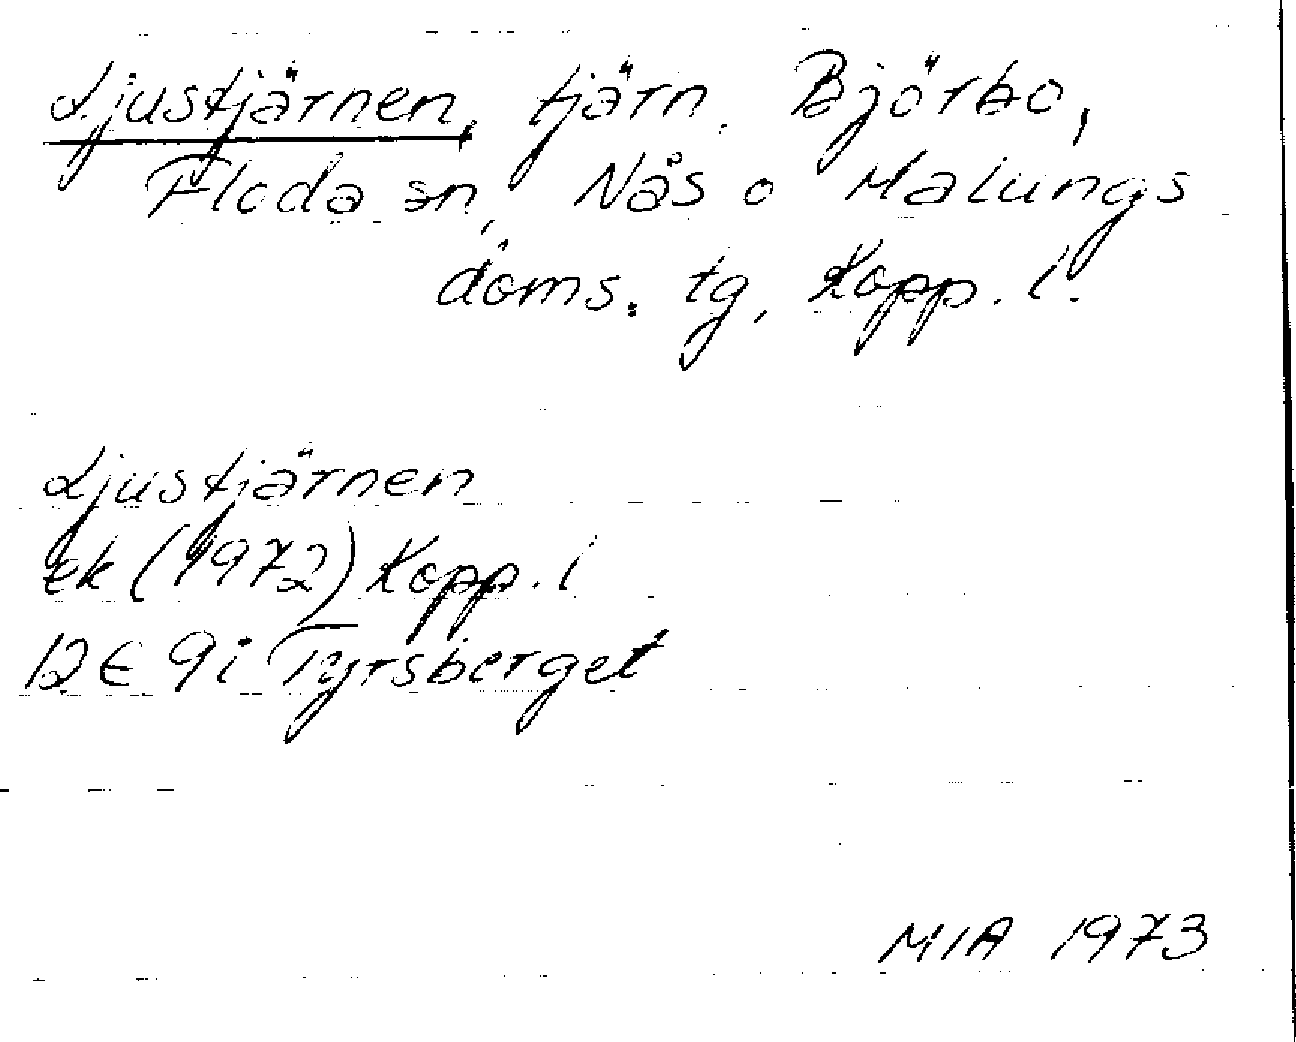 Ljustjärnen, tjärn. Björbo,
Floda sn, Nås o Malungs
doms. tg, Kopp. l.
Ljustjärnen
ek (1972) Kopp. l
12E 9i Tyrsberget
MIA 1973